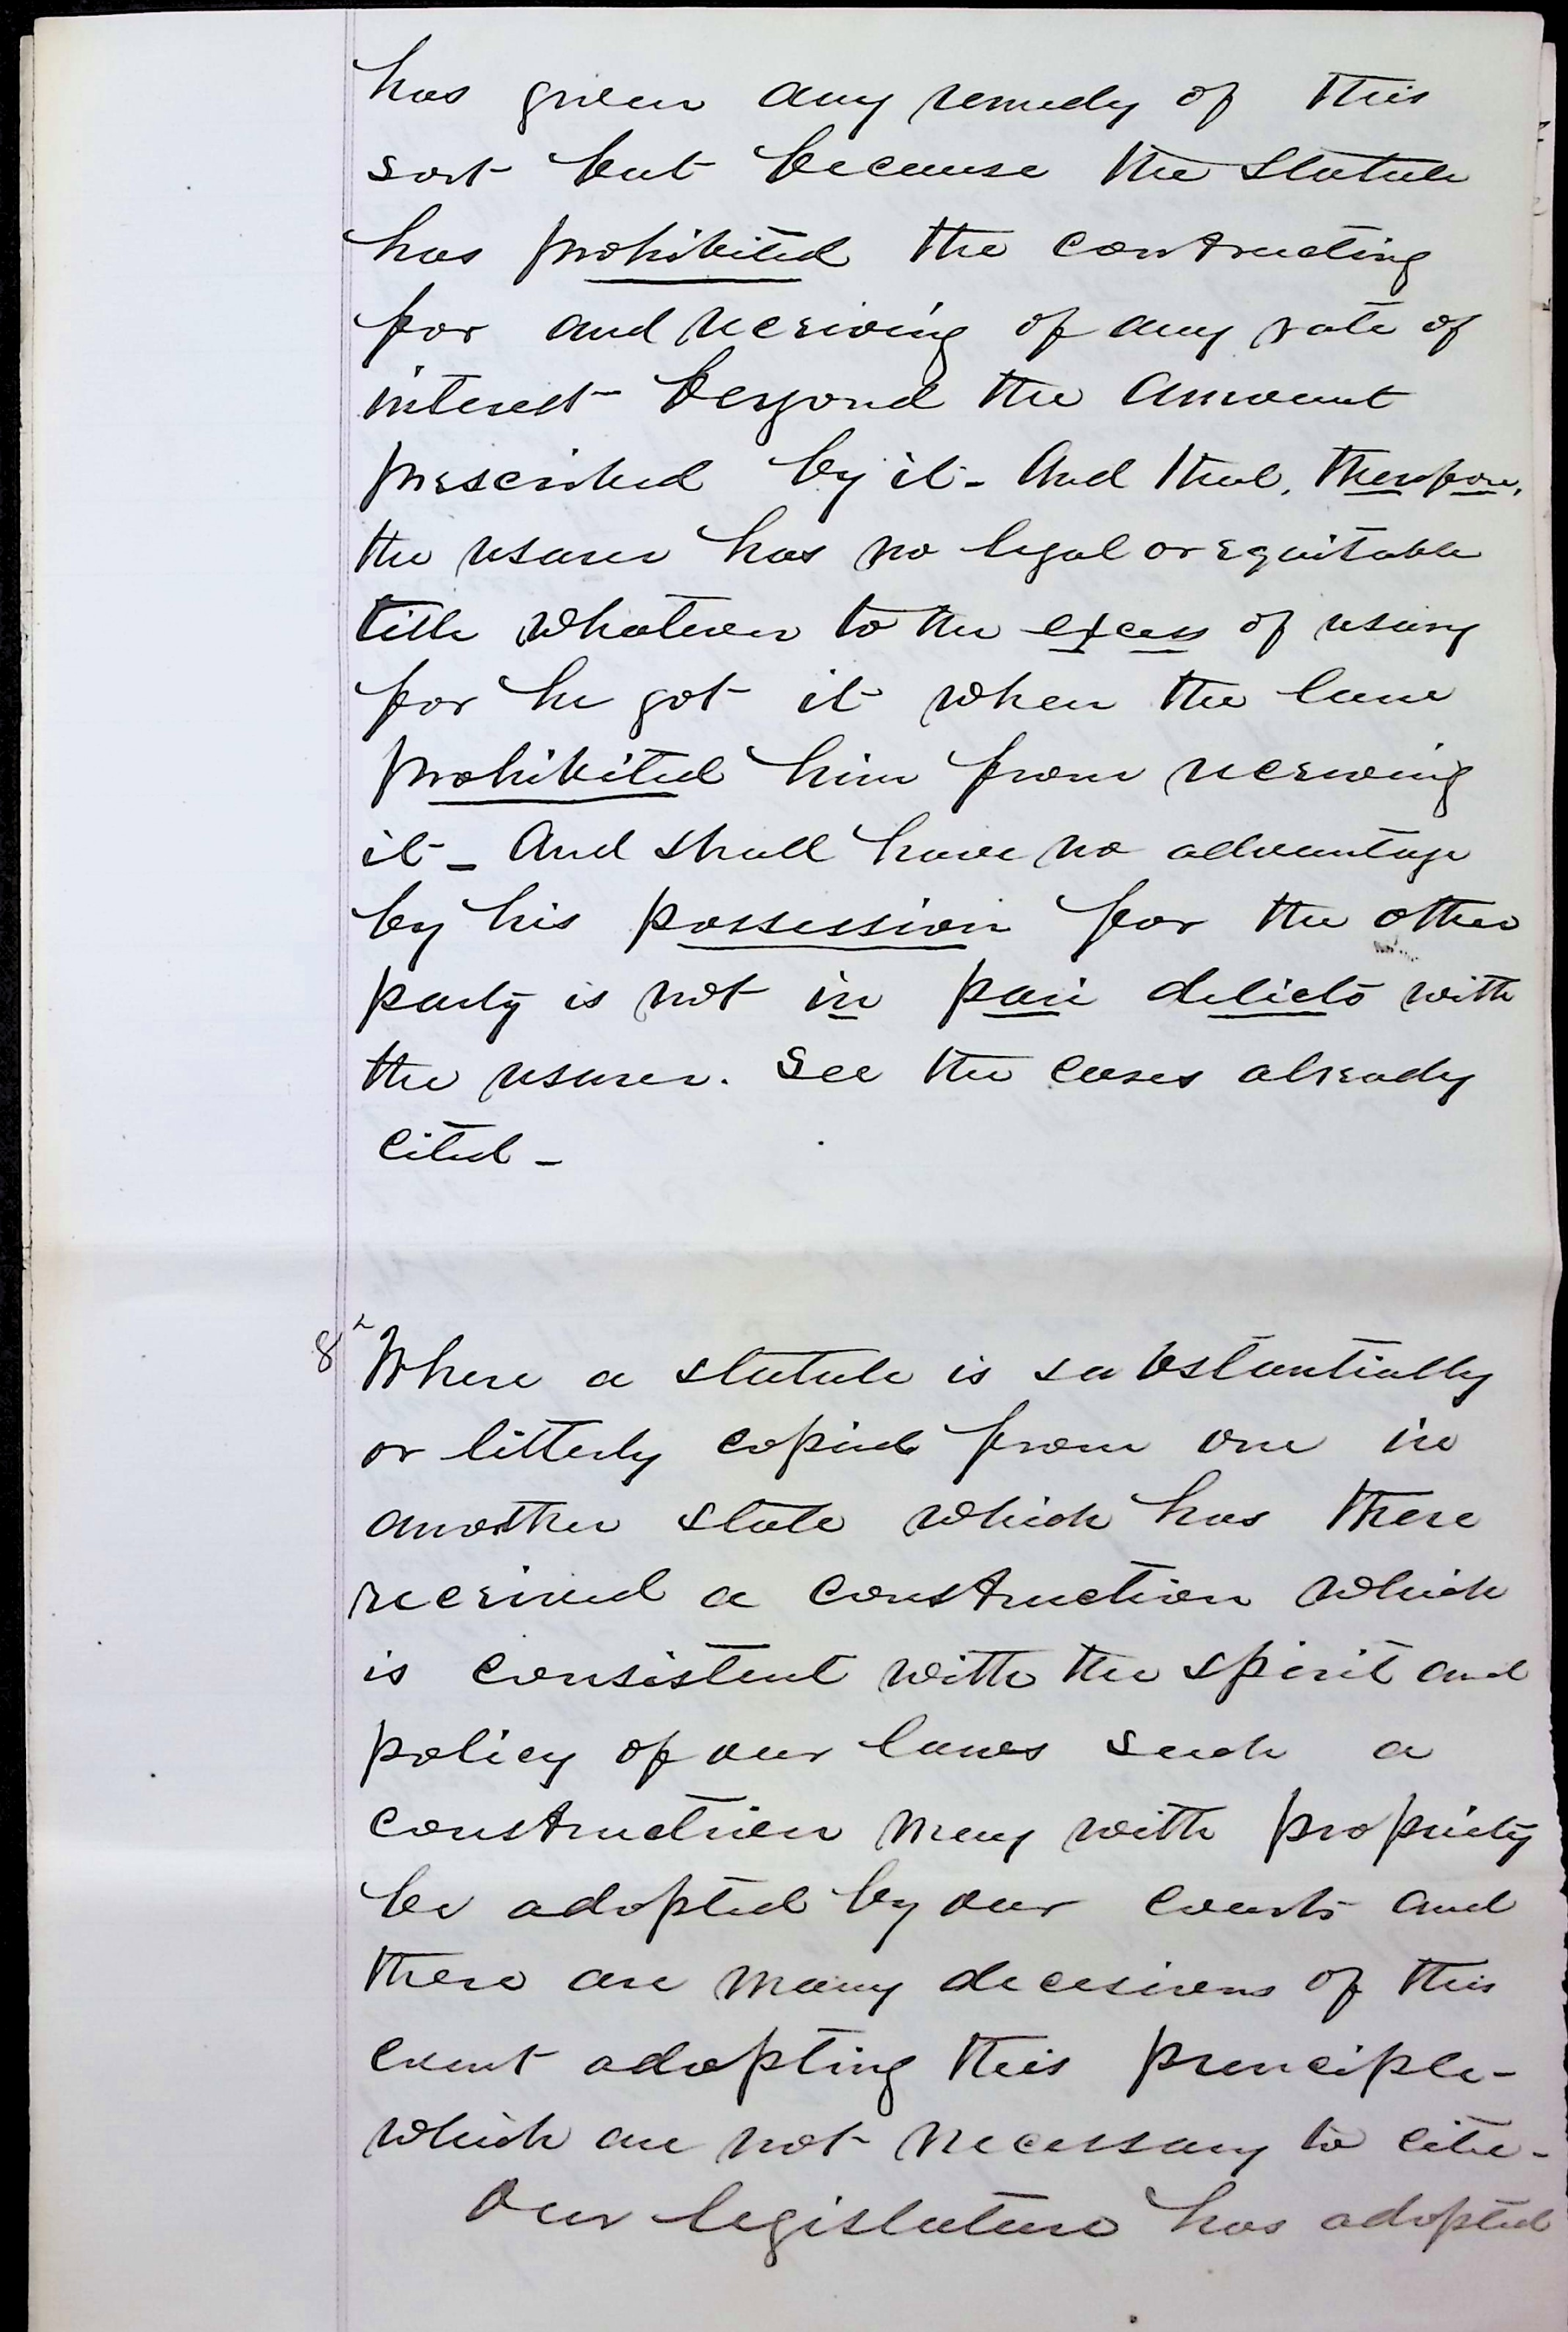 has given any remedy of this
sort but because the Statute
has prohibited the contracting
for and receiving of any rate of
interest beyond the amount
prescribed by it - And that, therefore,
the usurer has no legal or equitable
title whatever to the excess of usury
for he got it when the law
prohibited him from receiving
it - And shall have no advantage
by his possession for the other
party is not in pari delicto with
the usurer. See the cases already
cited -
8 Where a statute is substantially
or litterly copied from one in
another state which has there
received a construction which
is consistent with the spirit and
policy of our laws such a
construction may with propriety
be adopted by our courts and
there are many decesions of this
court adopting this principle -
which are not necessary to cite -
Our legislature has adopted